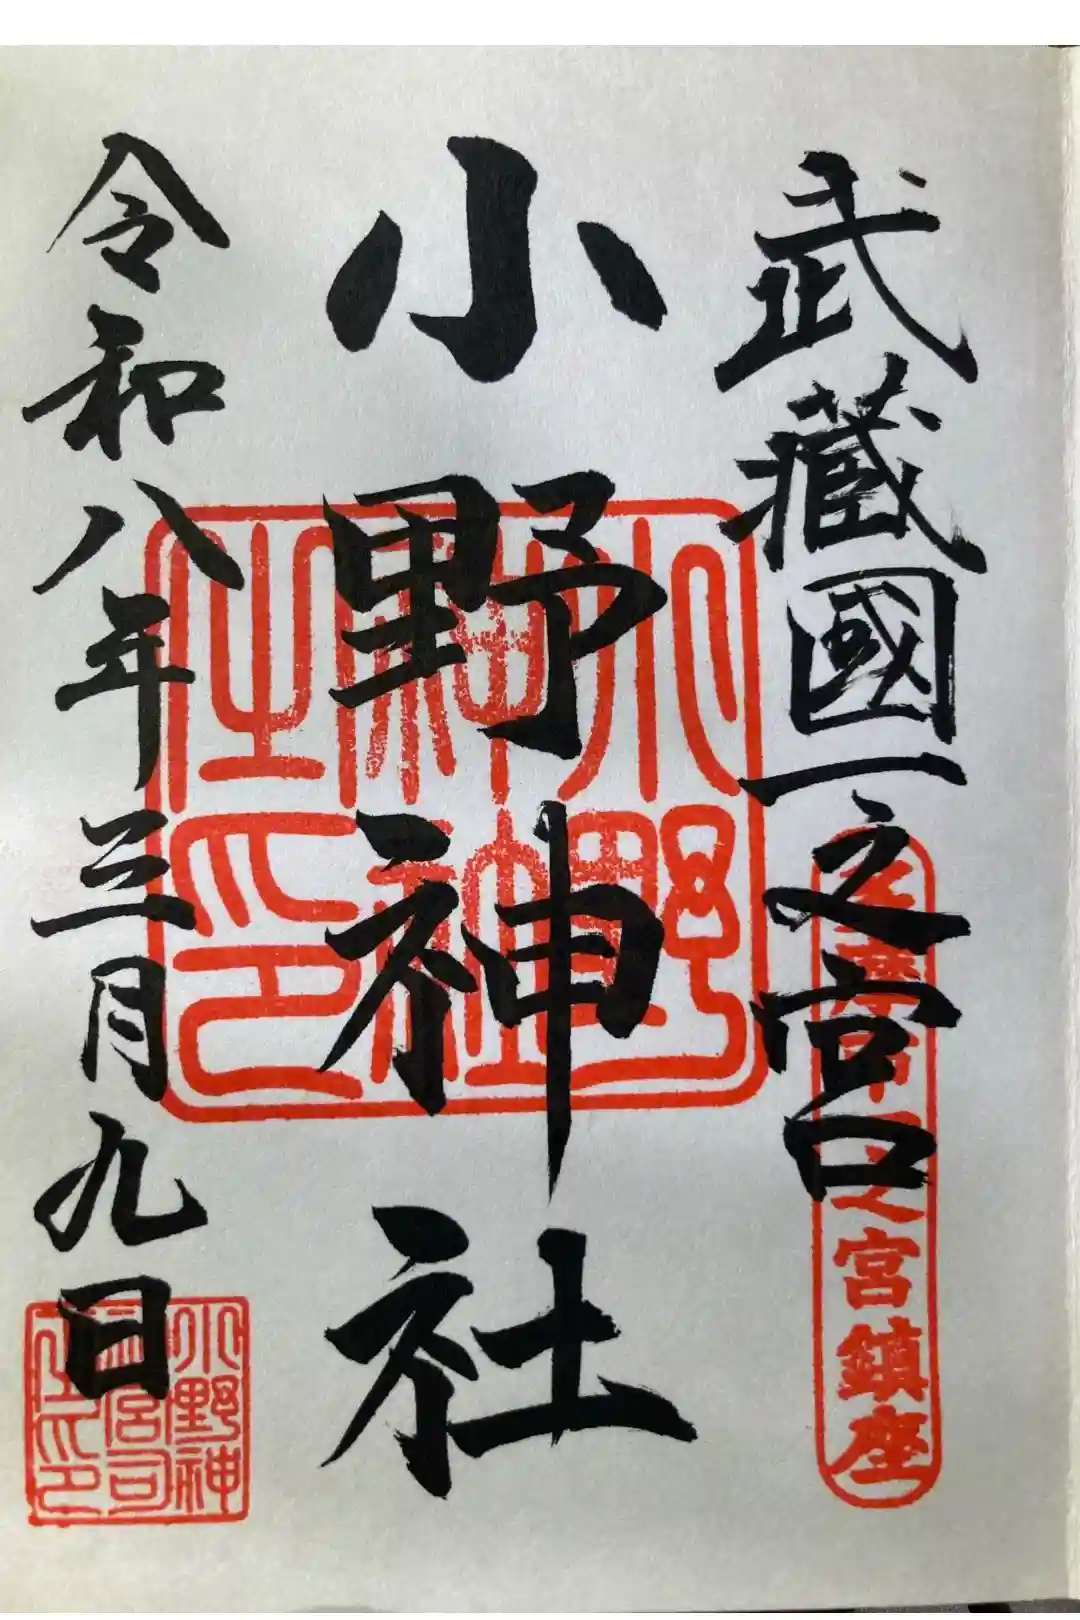 武藏國一之宮
小野神社
令和八年三月九日
小野神社之印
之宮鎮座
小野神
宮司
之印